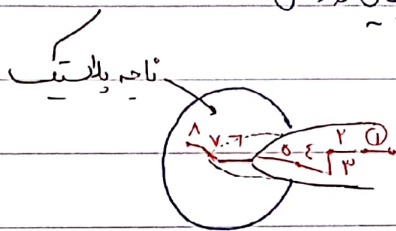 ناحیه پلاستیک
۸ ۷ ۶ ۵ ٤ ۳ ۲ ①